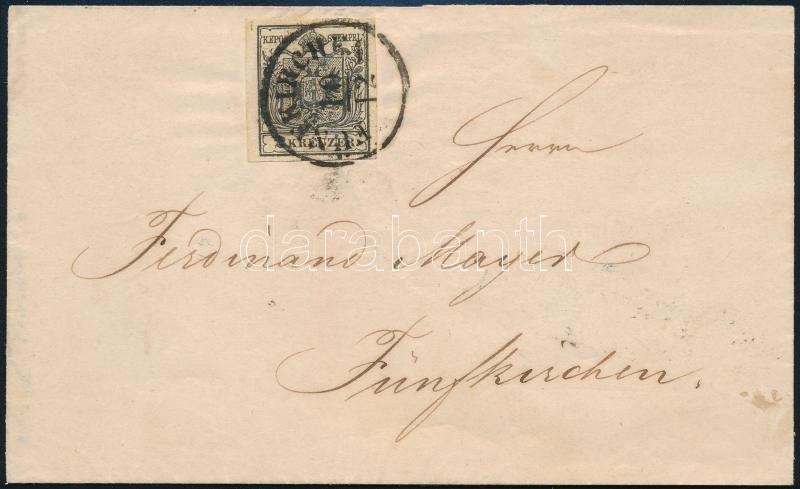 KKPOST STEMPEL
FÜNFKIRCHEN
10
12
2 KREUZER
Herrn
Ferdinand Mayer
Fünfkirchen.
darabanth